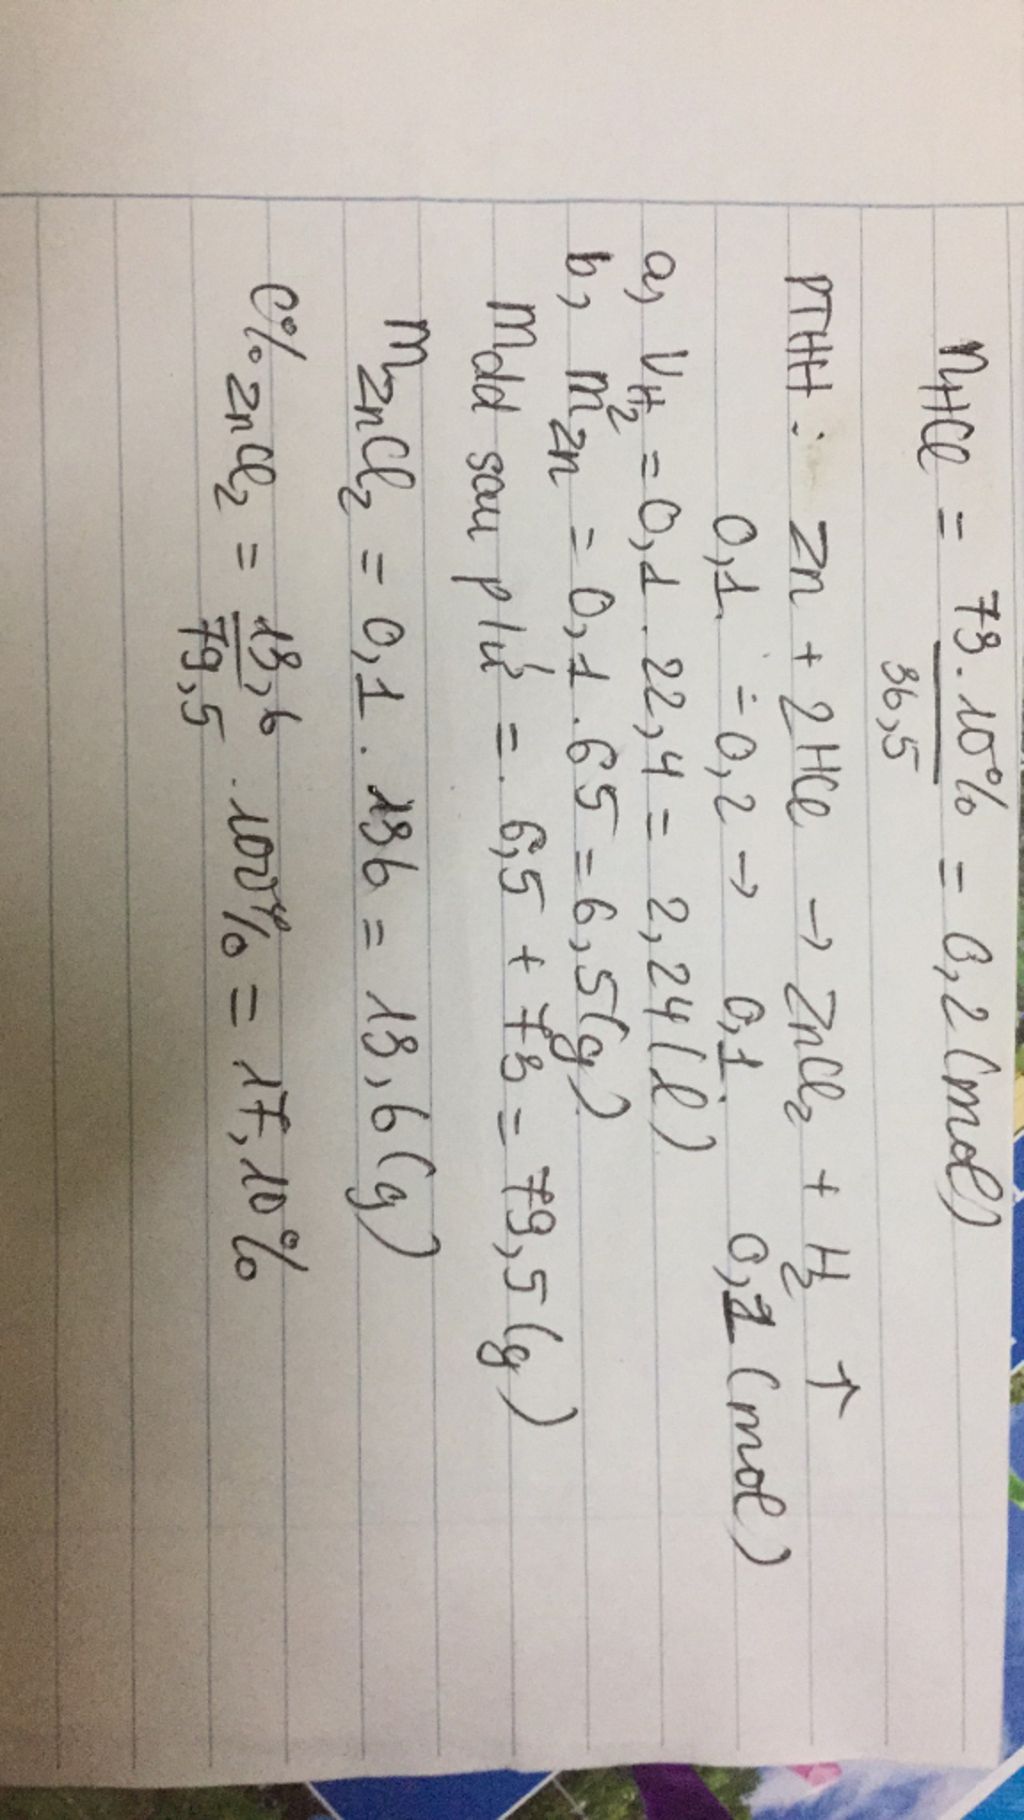 nHCl = 73.10% / 36,5 = 0,2 (mol)
PTHH: Zn + 2HCl → ZnCl2 + H2 ↑
0,1 ÷ 0,2 → 0,1 0,1 (mol)
a, VH2 = 0,1 . 22,4 = 2,24 (l)
b, mZn = 0,1 . 65 = 6,5 (g)
mdd sau p/ứ = 6,5 + 73 = 79,5 (g)
mZnCl2 = 0,1 . 136 = 13,6 (g)
C% ZnCl2 = 13,6 / 79,5 . 100% = 17,10%